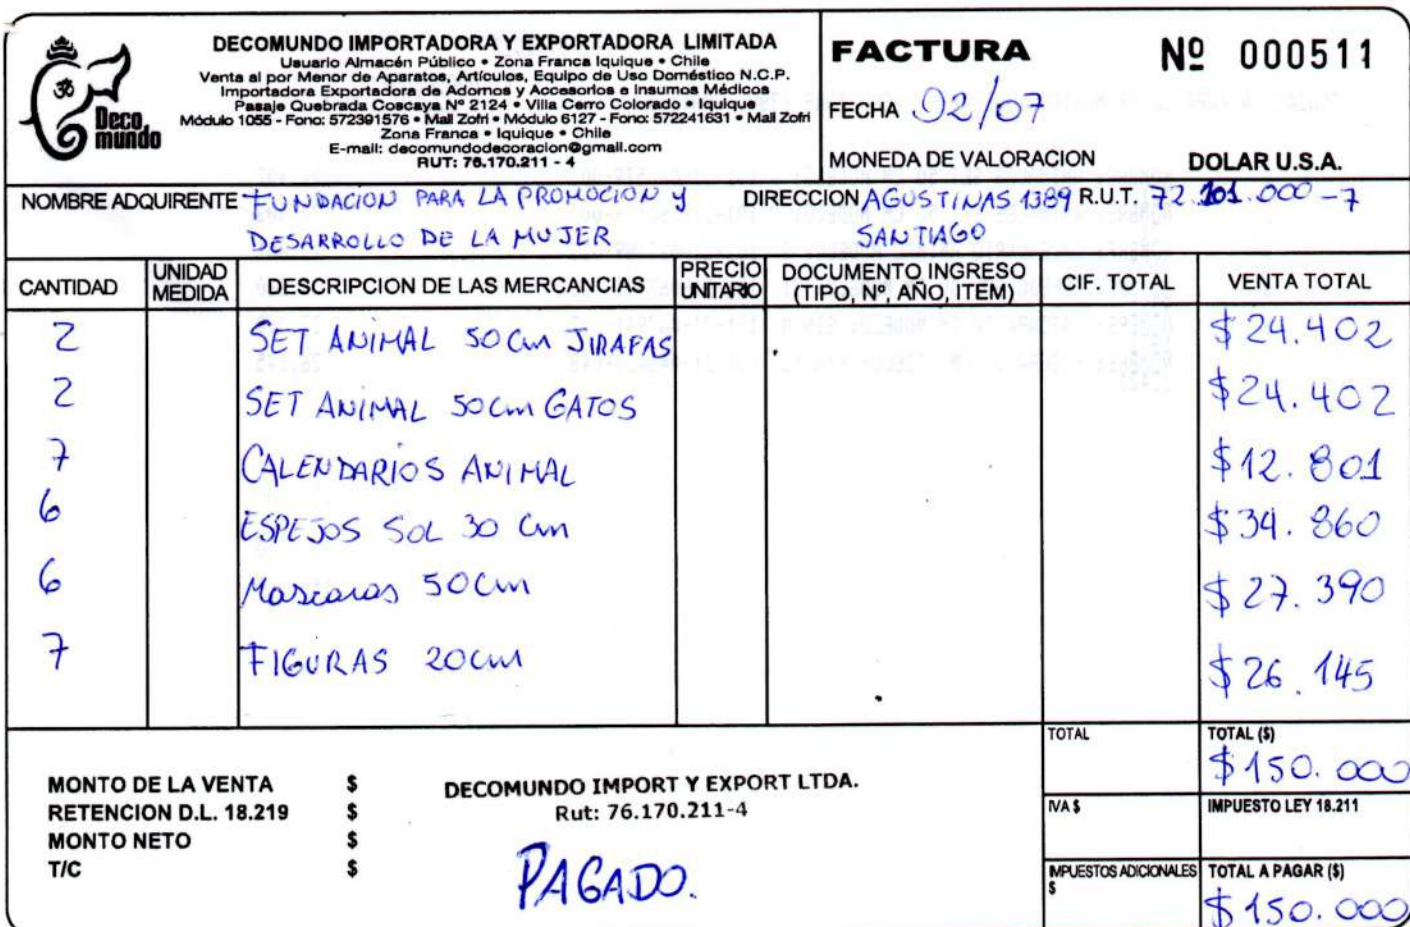 Deco
mundo
DECOMUNDO IMPORTADORA Y EXPORTADORA LIMITADA
Usuario Almacén Público • Zona Franca Iquique • Chile
Venta al por Menor de Aparatos, Artículos, Equipo de Uso Doméstico N.C.P.
Importadora Exportadora de Adornos y Accesorios e Insumos Médicos
Pasaje Quebrada Coscaya Nº 2124 • Villa Cerro Colorado • Iquique
Módulo 1055 - Fono: 572391576 • Mall Zofri • Módulo 6127 - Fono: 572241631 • Mall Zofri
Zona Franca • Iquique • Chile
E-mail: decomundodecoracion@gmail.com
RUT: 76.170.211 - 4
FACTURA Nº 000511
FECHA 02/07
MONEDA DE VALORACION DOLAR U.S.A.
NOMBRE ADQUIRENTE FUNDACION PARA LA PROMOCION Y DIRECCION AGUSTINAS 1389 R.U.T. 72.101.000-7
DESARROLLO DE LA MUJER SANTIAGO
CANTIDAD UNIDAD MEDIDA DESCRIPCION DE LAS MERCANCIAS PRECIO UNITARIO DOCUMENTO INGRESO (TIPO, Nº, AÑO, ITEM) CIF. TOTAL VENTA TOTAL
2 SET ANIMAL 50cm JIRAFAS $24.402
2 SET ANIMAL 50cm GATOS $24.402
7 CALENDARIOS ANIMAL $12.801
6 ESPEJOS SOL 30 cm $34.860
6 Mascaras 50cm $27.390
7 FIGURAS 20cm $26.145
TOTAL TOTAL ($)
$150.000
MONTO DE LA VENTA $ DECOMUNDO IMPORT Y EXPORT LTDA.
RETENCION D.L. 18.219 $ Rut: 76.170.211-4 IVA $ IMPUESTO LEY 18.211
MONTO NETO $
T/C $ PAGADO. IMPUESTOS ADICIONALES $ TOTAL A PAGAR ($)
$150.000